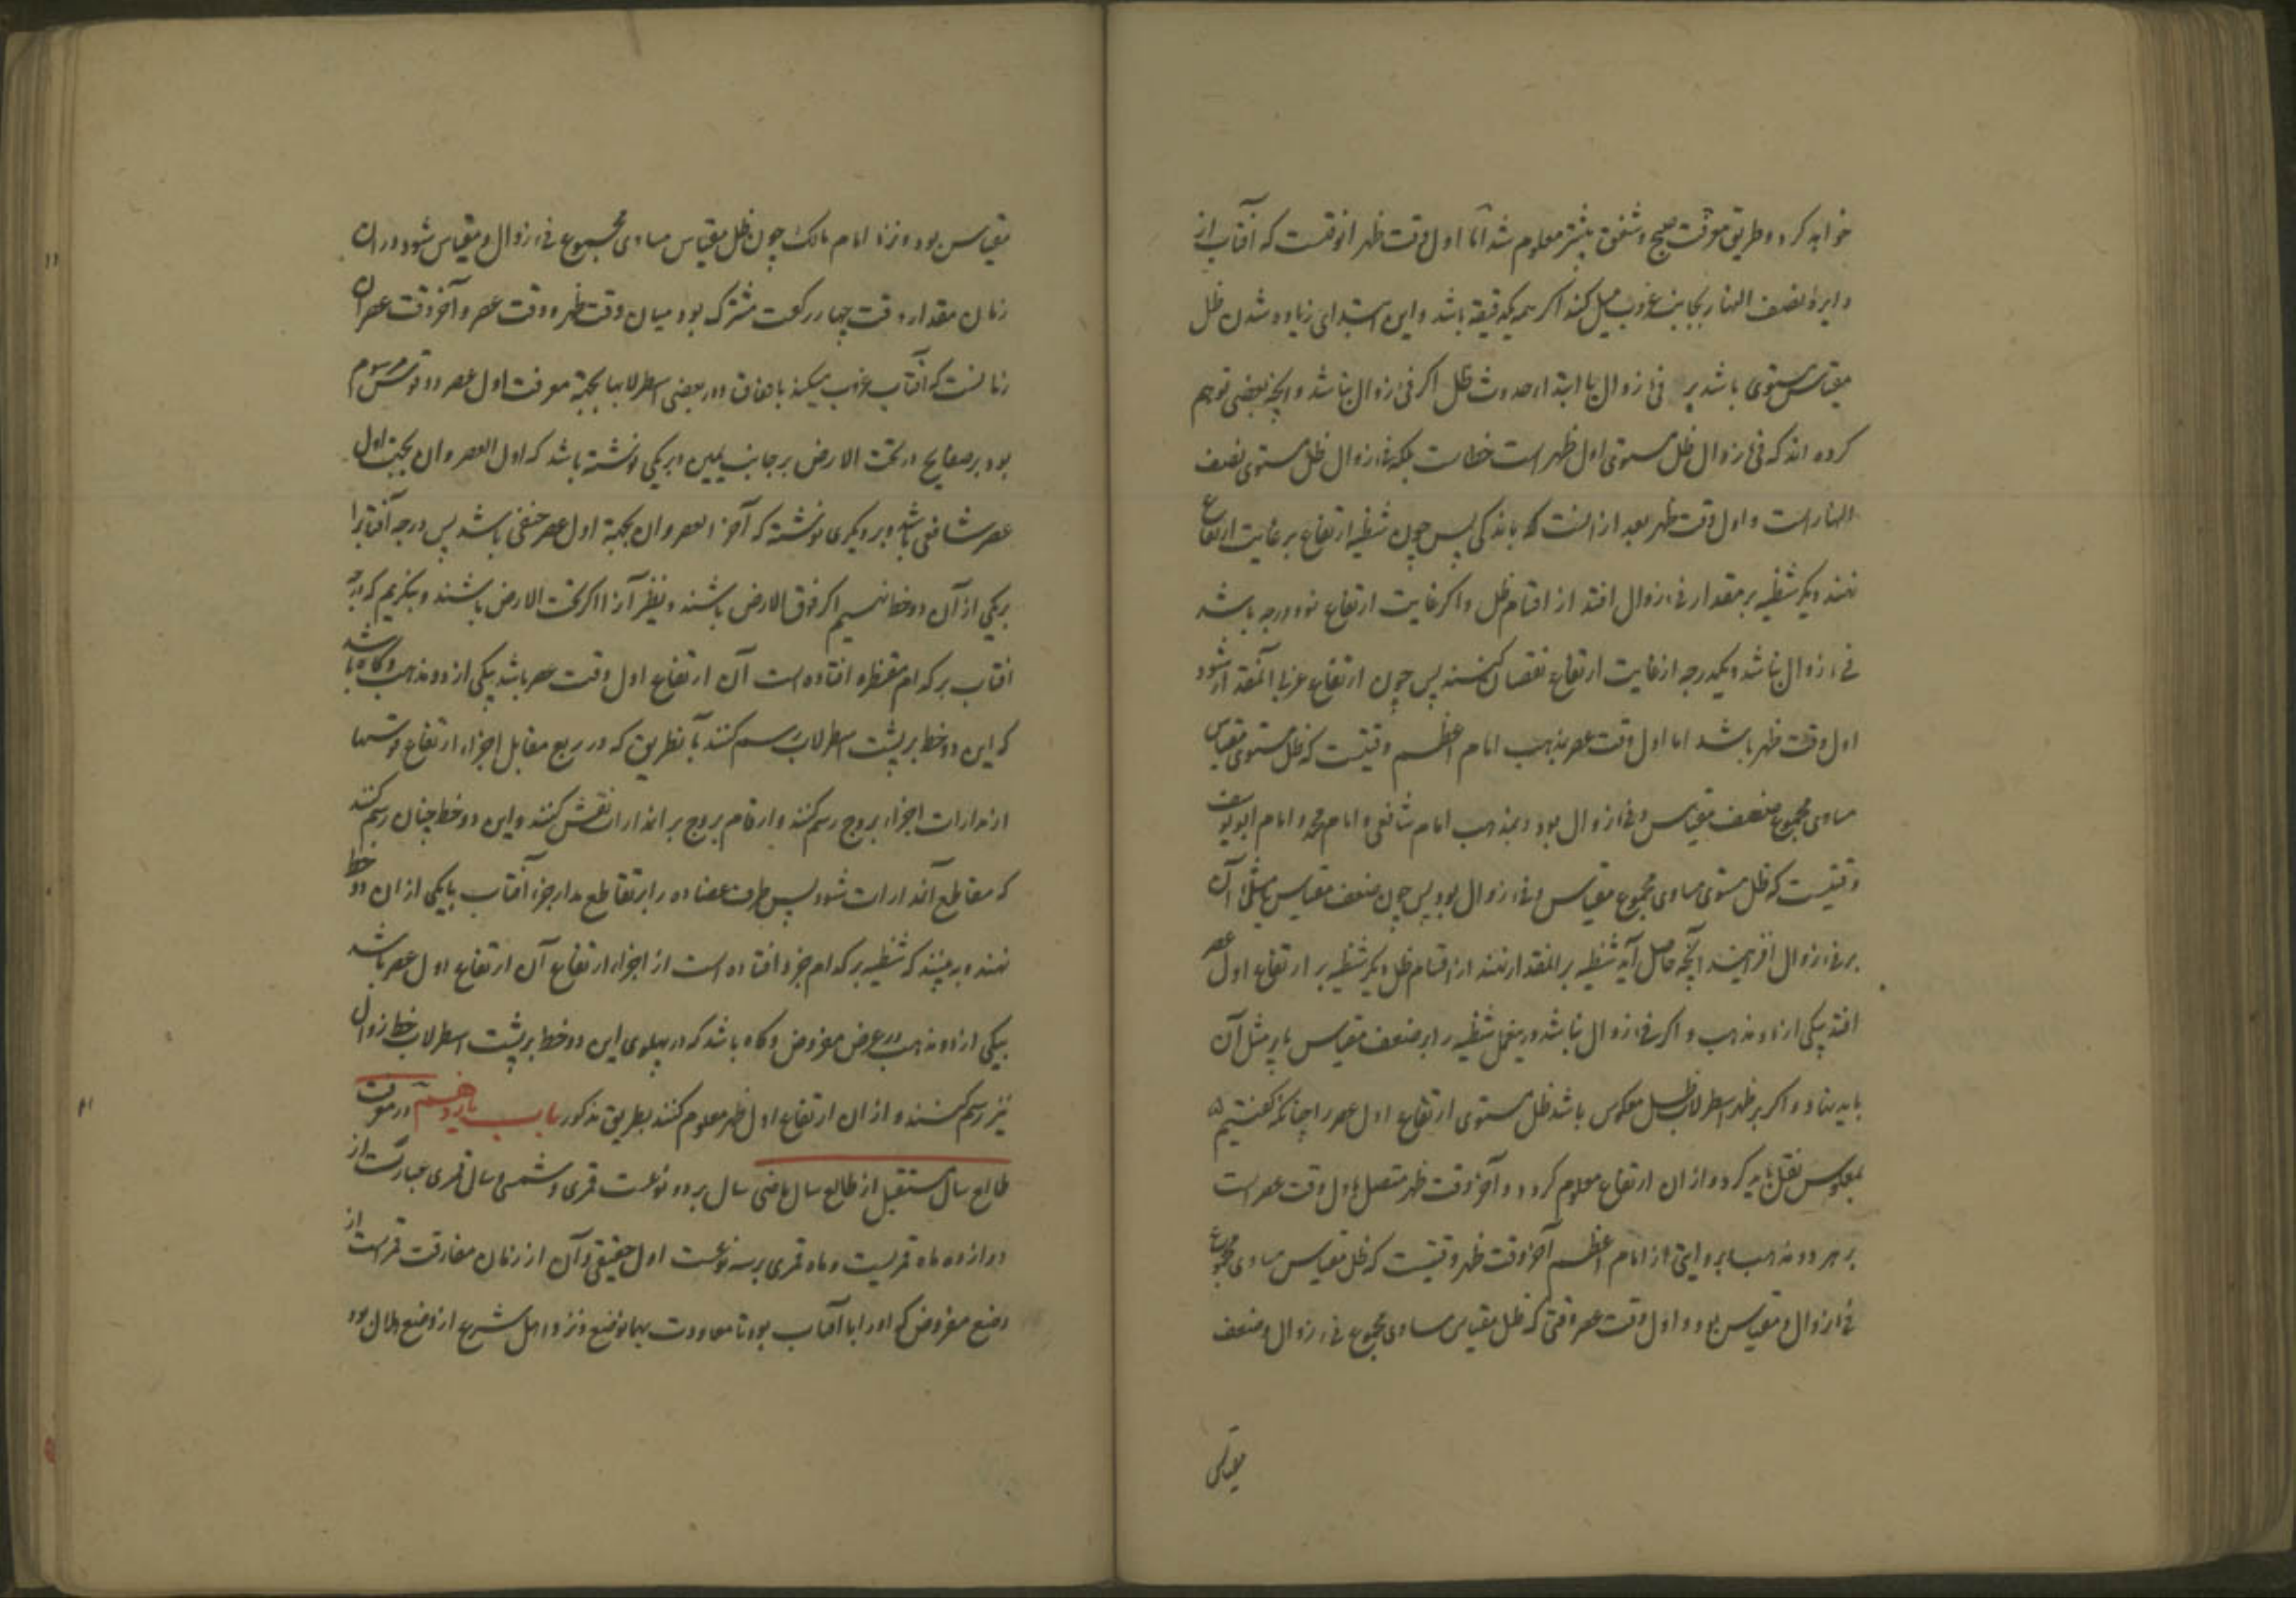 خواهد کرد و طریق معرفت صبح و شفق پیشتر معلوم شد اما اول وقت ظهر انوقتست که آفتاب از
دایرهٔ نصف النهار بجانب غروب میل کند اگر همه یکدقیقه باشد و این ابتدای زیاده شدن ظل
مقیاس مستوی باشد بر فیٔ زوال یا ابتداء حدوث ظل اکر فیٔ زوال نباشد و انچه بعضی توهم
کرده اند که فیٔ زوال ظل مستوی اول ظهر است خطاست بلکه فیٔ زوال ظل مستوی نصف
النهار است و اول وقت ظهر بعد از انست باندکی پس چون شظیه ارتفاع بر غایت ارتفاع
نهند دیکر شظیه بر مقدار فیٔ زوال افتد از اقسام ظل و اکر غایت ارتفاع نود درجه باشد
فیٔ زوال نباشد و یکدرجه از غایت ارتفاع نقصان کنند پس چون ارتفاع غربی آنمقدار شود
اول وقت ظهر باشد اما اول وقت عصر بمذهب امام اعظم وقتیست که ظل مستوی مقیاس
مساوی مجموع ضعف مقیاس و فیٔ زوال بود و بمذهب امام شافعی و امام محمد و امام ابو یوسف
وقتیست که ظل مستوی مساوی مجموع مقیاس و فیٔ زوال بود پس چون ضعف مقیاس یا مثل آن
بر فیٔ زوال افزایند آنچه حاصل آید شظیه بر انمقدار نهند از اقسام ظل دیکر شظیه بر ارتفاع اول عصر
افتد بیکی از دو مذهب و اکر فیٔ زوال نباشد در ینمحل شظیه را بر ضعف مقیاس یا بر مثل آن
باید نهاد و اکر بر ظهر اسطرلاب ظل معکوس باشد ظل مستوی ارتفاع اول عصر را چنانکه کفتیم
بمعکوس نقل باید کرد و از ان ارتفاع معلوم کردد و آخر وقت ظهر متصل باول وقت عصر است
بر هر دو مذهب اما بروایتی از امام اعظم آخر وقت ظهر وقتیست که ظل مقیاس مساوی مجموع
فیٔ زوال و مقیاس بود و اول وقت عصر وقتی که ظل مقیاس مساوی مجموع فیٔ زوال و ضعف
مقیاس
مقیاس بود و نزد امام مالک چون ظل مقیاس مساوی مجموع فیٔ زوال و مقیاس شود در ان
زمان مقدار وقت چهار رکعت مشترک بود میان وقت ظهر و وقت عصر و آخر وقت عصر ان
زمانست که آفتاب غروب میکند باتفاق و در بعضی اسطرلابها بجهة معرفت اول عصر دو قوس مرسوم
بود بر صفایح در تحت الارض بر جانب یمین و بر یکی نوشته باشد که اول العصر و ان بجهت اول
عصر شافعی باشد و بر دیکری نوشته که آخر العصر و ان بجهة اول عصر حنفی باشد پس درجه آفتاب را
بر یکی از آن دو خط نهیم اکر فوق الارض باشند و نظیر آنرا اکر تحت الارض باشند و بنکریم که درجه
افتاب بر کدام مقنطره افتاده است آن ارتفاع اول وقت عصر باشد بیکی از دو مذهب و کاه باشد
که این دو خط بر پشت اسطرلاب رسم کنند بآنطریق که در ربع مقابل اجزاء ارتفاع قوسها
از مدارات اجزاء بروج رسم کنند و ارقام بروج بر انمدارات نقش کنند و این دو خط چنان رسم کنند
که مقاطع آنمدارات شود پس طرف عضاده را بر تقاطع مدار جزء آفتاب با یکی از ان دو خط
نهند و به بینند که شظیه بر کدام جزء افتاده است از اجزاء ارتفاع آن ارتفاع اول عصر باشد
بیکی از دو مذهب در عرض مفروض و کاه باشد که در پهلوی این دو خط بر پشت اسطرلاب خط زوال
نیز رسم کنند و از ان ارتفاع اول ظهر معلوم کنند بطریق مذکور باب یازدهم در معرفت
طالع سال مستقبل از طالع سال ماضی سال بر دو نوعست قمری و شمسی سال قمری عبارتست از
دوازده ماه قمریست و ماه قمری بر سه نوعست اول حقیقی و آن از زمان مفارقت قمر است از
وضع مفروض که او را با آفتاب بود تا معاودت بهمانوضع و نزد اهل شرع از وضع هلال بود